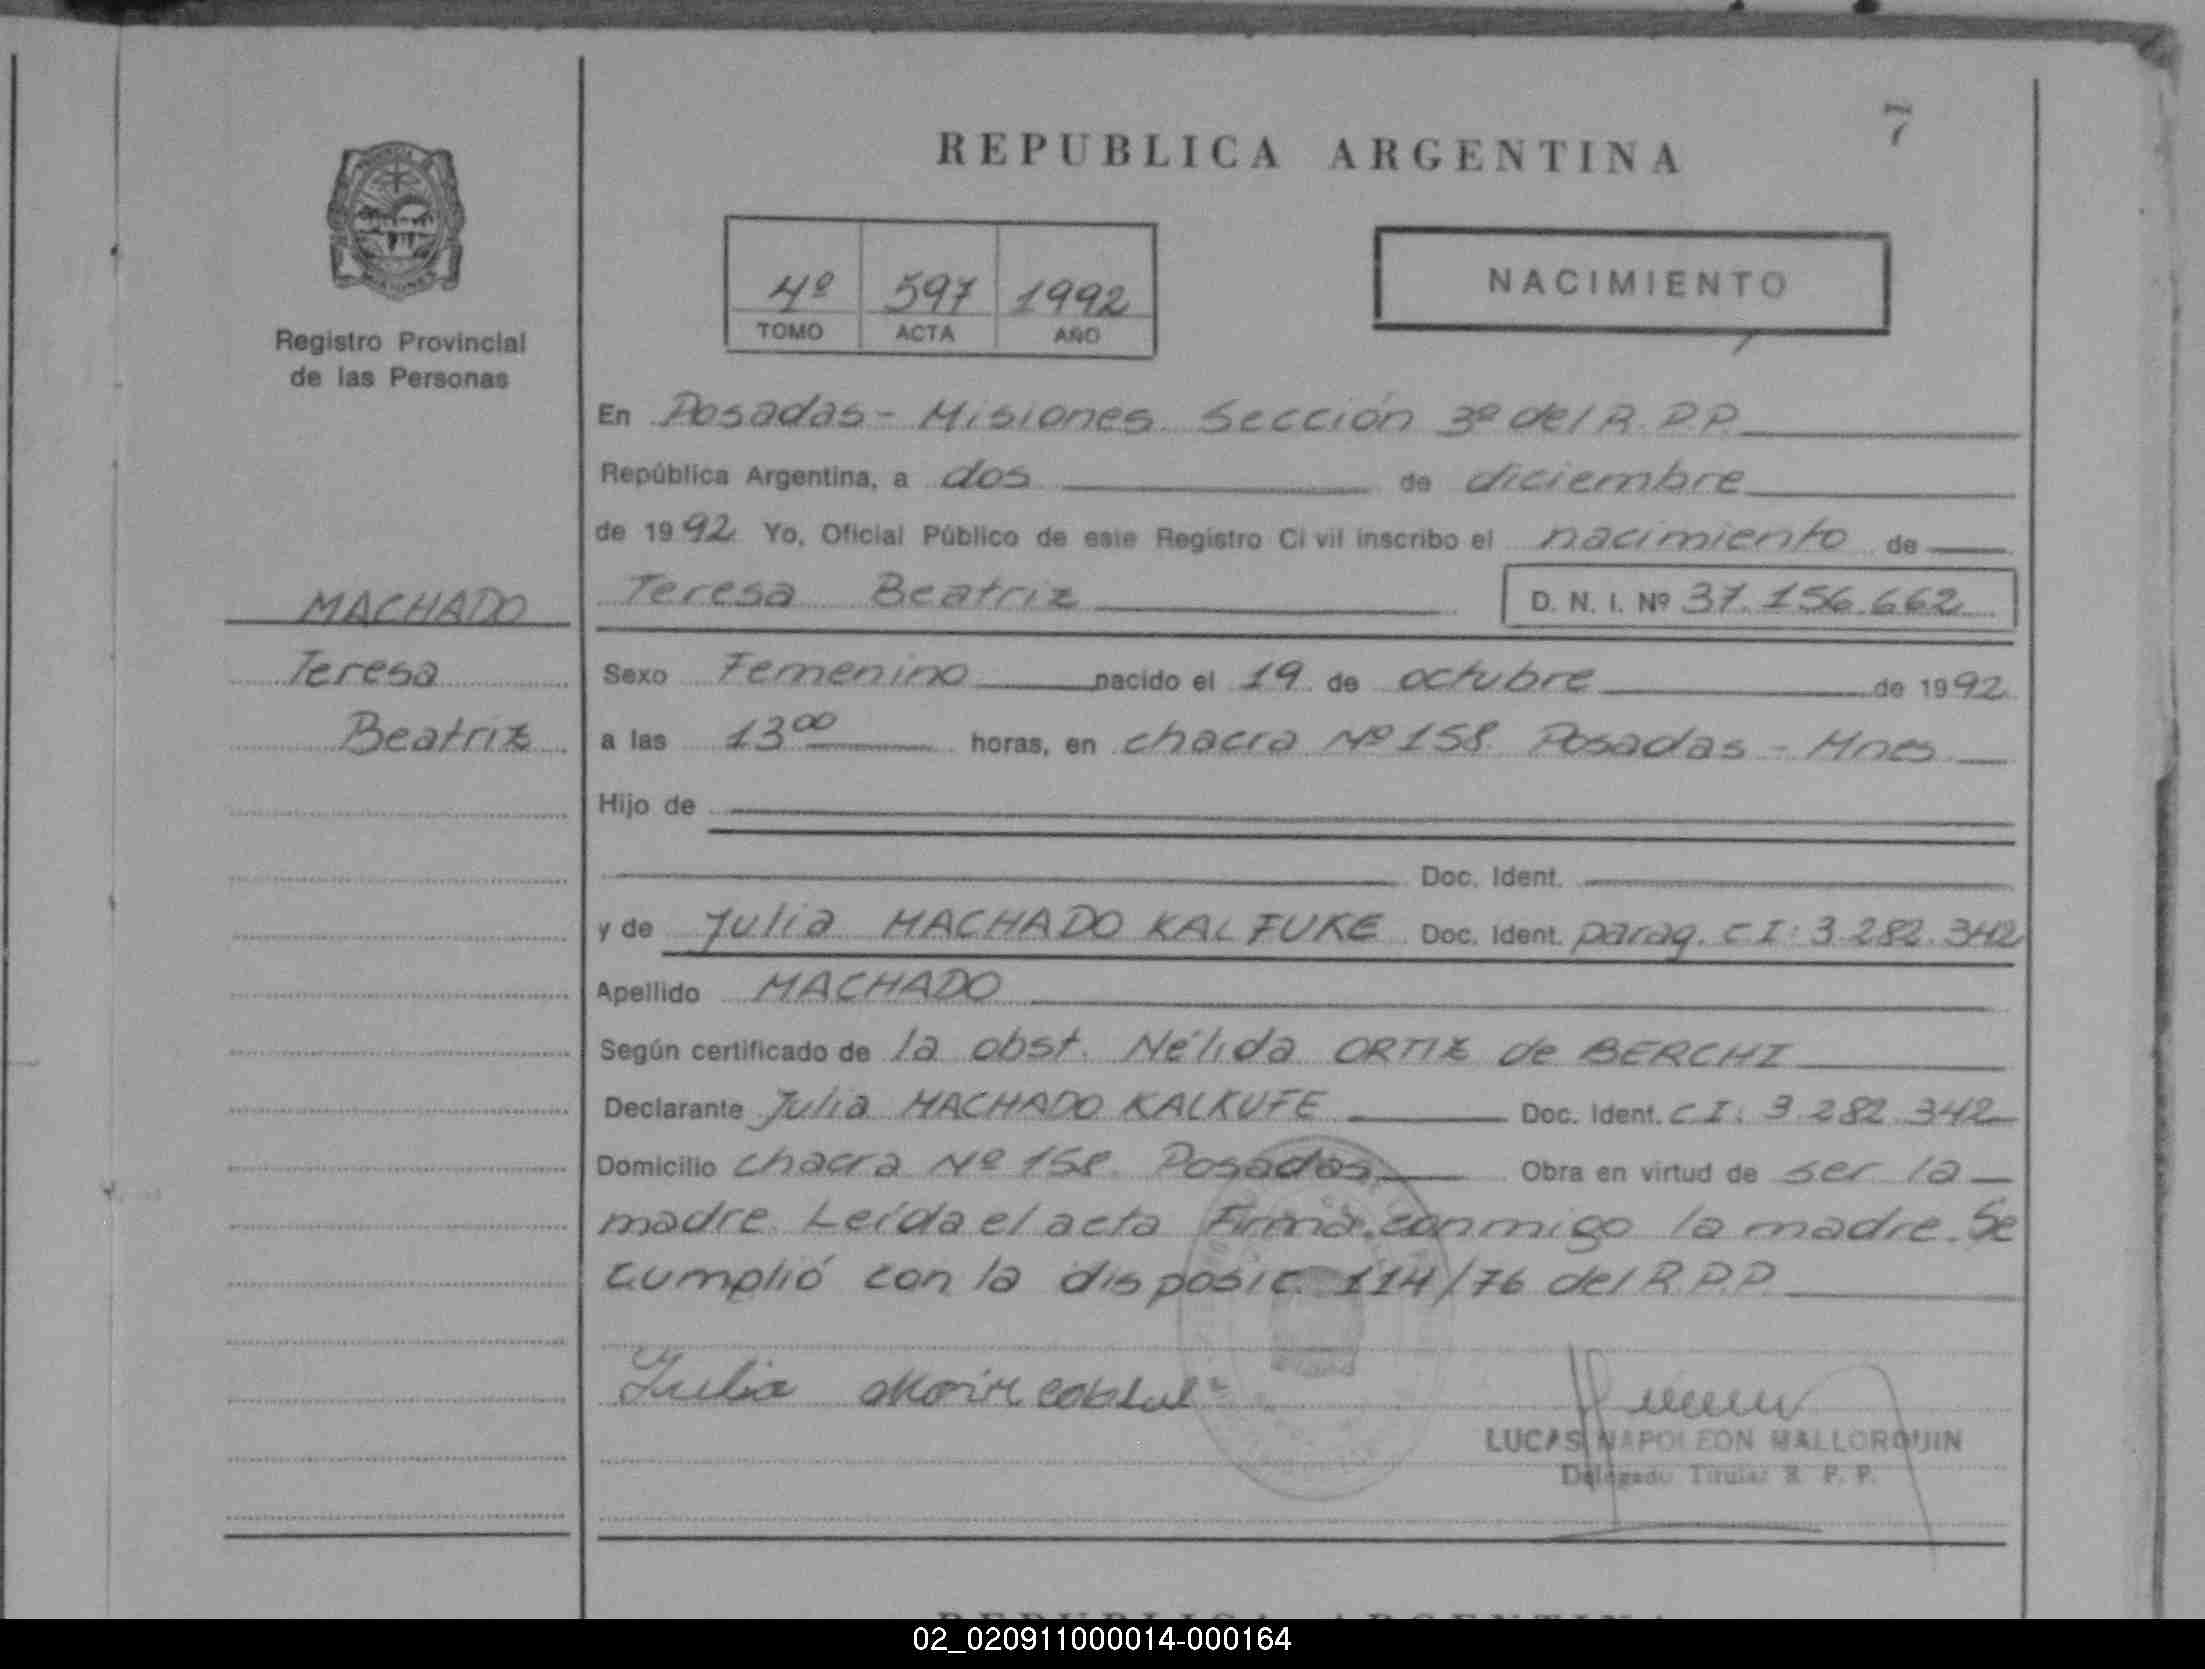 7
REPUBLICA ARGENTINA
4º 597 1992
TOMO ACTA AÑO
NACIMIENTO
Registro Provincial
de las Personas
En Posadas - Misiones Sección 3º del R.P.P.
República Argentina, a dos de diciembre
de 1992 Yo, Oficial Público de este Registro Civil inscribo el nacimiento de
Teresa Beatriz D. N. I. Nº 37.156.662
MACHADO
Teresa
Beatriz
Sexo Femenino nacido el 19 de octubre de 1992
a las 13 00 horas, en chacra Nº 158 Posadas - Mnes
Hijo de
Doc. Ident.
y de Julia MACHADO KALFUKE Doc. Ident. parag. CI: 3.282.342
Apellido MACHADO
Según certificado de la obst. Nélida ORTIZ de BERCHI
Declarante Julia MACHADO KALKUFE Doc. Ident. C.I: 3.282.342
Domicilio chacra Nº 158 Posadas Obra en virtud de ser la
madre. Leída el acta Firma conmigo la madre. Se
cumplió con la disposic. 114/76 del R.P.P.
Julia
LUCAS NAPOLEON MALLORQUIN
Delegado Titular R. P. P.
REPUBLICA ARGENTINA
02_020911000014-000164